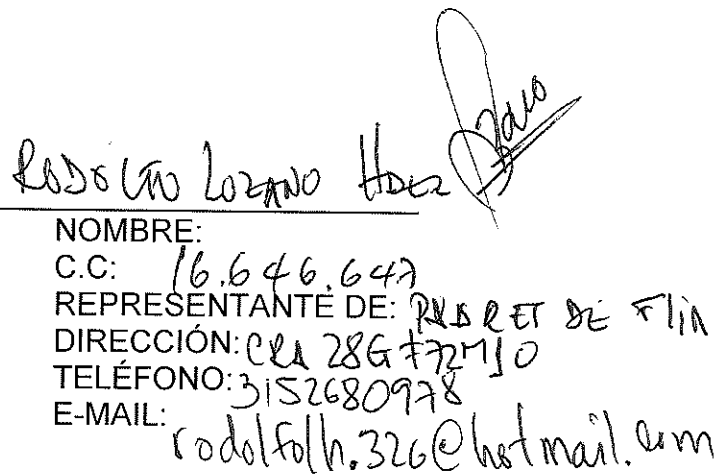 RODOLFO LOZANO HDEZ
NOMBRE:
C.C: 16.646.647
REPRESENTANTE DE: PADRE DE FLIA
DIRECCIÓN: CRA 28G #72
TELÉFONO: 3152680978
E-MAIL: rodolfolh.326@hotmail.com